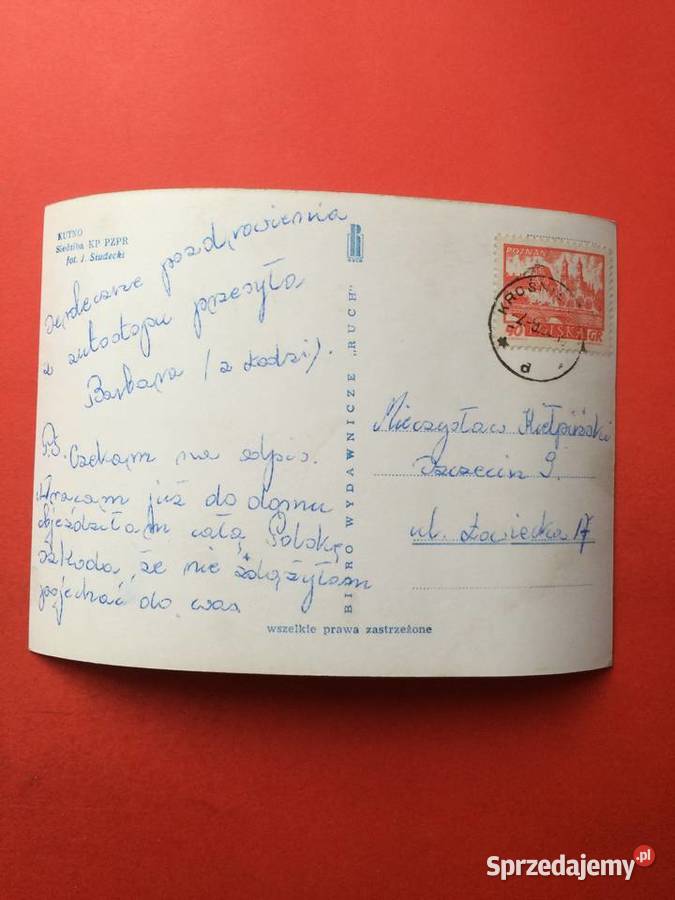 KUTNO
Siedziba KP PZPR
fot. J. Siudecki
serdeczne pozdrowienia
z autostopu przesyła
Barbara (z Łodzi).
P.S. Czekam na odpis.
Wracam już do domu
objeździłam całą Polskę
szkoda, że nie zdążyłam
pojechać do was
BIURO WYDAWNICZE „RUCH"
RUCH
POZNAŃ
40 POLSKA GR
KROŚNI
d
Mieczysław Kiełpiński
Szczecin 9.
ul. Łowiecka 17
wszelkie prawa zastrzeżone
Sprzedajemy.pl